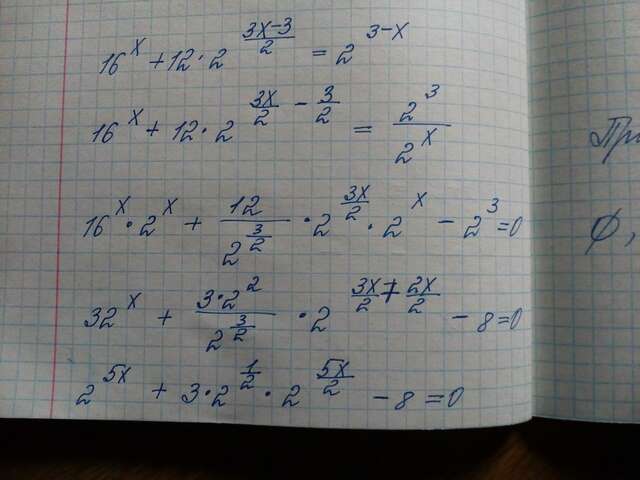 16^x + 12 · 2^{\frac{3x-3}{2}} = 2^{3-x}
16^x + 12 · 2^{\frac{3x}{2} - \frac{3}{2}} = \frac{2^3}{2^x}
16^x · 2^x + \frac{12}{2^{\frac{3}{2}}} · 2^{\frac{3x}{2}} · 2^x - 2^3 = 0
32^x + \frac{3·2^2}{2^{\frac{3}{2}}} · 2^{\frac{3x}{2} + \frac{2x}{2}} - 8 = 0
2^{5x} + 3 · 2^{\frac{1}{2}} · 2^{\frac{5x}{2}} - 8 = 0